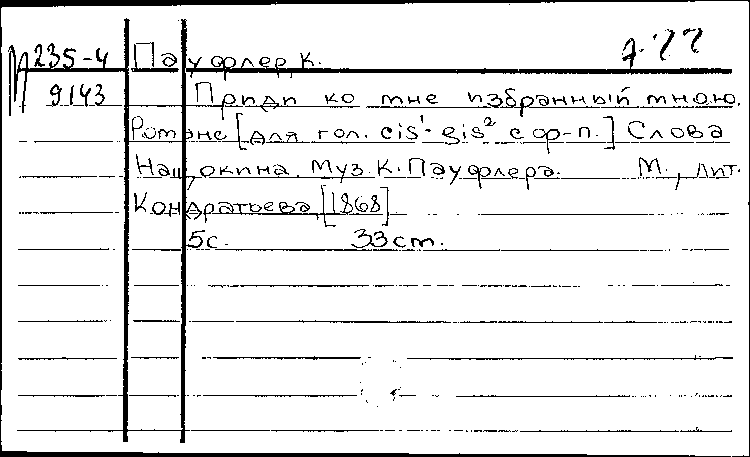 М 235-4 Пауфлер, К.
9143 Приди ко мне избранный мною.
Романс [для гол. cis¹-gis² с ф-п.] Слова
Нащокина. Муз. К. Пауфлера. М., лит.
Кондратьева, [1868]
5с. 33см.